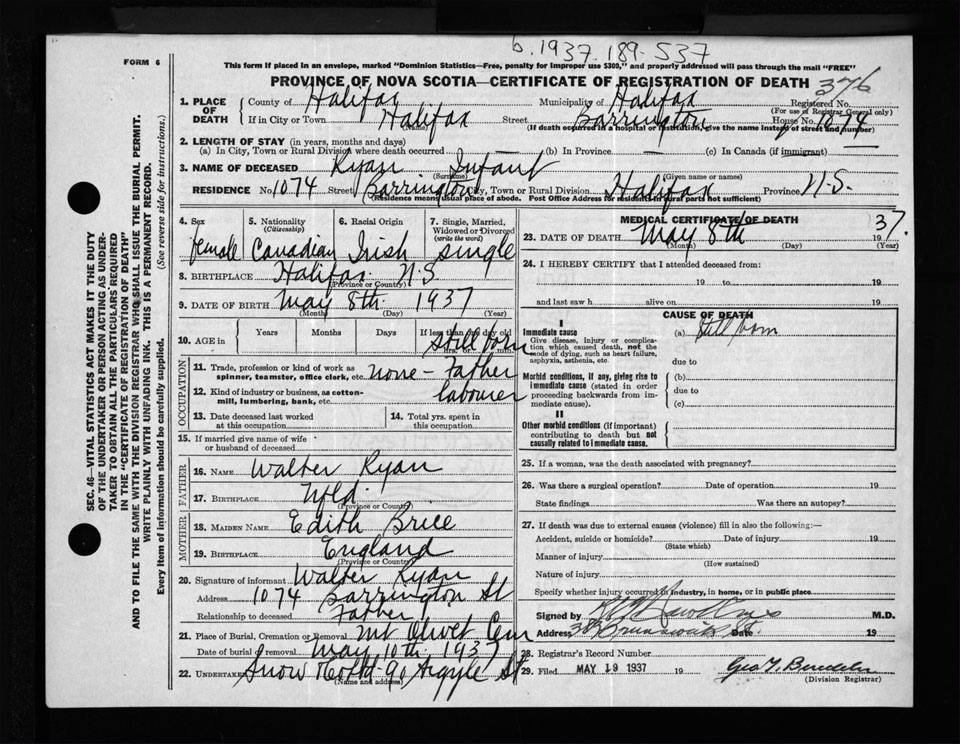 b. 1937. 189-537
FORM 6
This form if placed in an envelope, marked "Dominion Statistics—Free, penalty for improper use $300," and properly addressed will pass through the mail "FREE"
PROVINCE OF NOVA SCOTIA—CERTIFICATE OF REGISTRATION OF DEATH 376
1. PLACE OF DEATH County of Halifax Municipality of Halifax Registered No.
(For use of Registrar General only)
If in City or Town Halifax Street Barrington House No. 1074
(Name) (If death occurred in a hospital or institution, give the name instead of street and number)
2. LENGTH OF STAY (in years, months and days)
(a) In City, Town or Rural Division where death occurred — (b) In Province — (c) In Canada (if immigrant) —
3. NAME OF DECEASED Ryan Infant
(Surname) (Given name or names)
RESIDENCE No. 1074 Street Barrington City, Town or Rural Division Halifax Province N.S.
(Residence means usual place of abode. Post Office Address for residents in rural parts not sufficient)
4. Sex 5. Nationality (Citizenship) 6. Racial Origin 7. Single, Married, Widowed or Divorced (write the word)
female Canadian Irish single
8. BIRTHPLACE Halifax N.S.
(Province or Country)
9. DATE OF BIRTH May 8th 1937
(Month) (Day) (Year)
10. AGE in Years Months Days If less than one day old
hrs. or min.
still born
OCCUPATION
11. Trade, profession or kind of work as spinner, teamster, office clerk, etc. none - father
12. Kind of industry or business, as cotton-mill, lumbering, bank, etc. labourer
13. Date deceased last worked at this occupation
14. Total yrs. spent in this occupation
15. If married give name of wife or husband of deceased
FATHER
16. NAME Walter Ryan
17. BIRTHPLACE Nfld.
(Province or Country)
MOTHER
18. MAIDEN NAME Edith Brice
19. BIRTHPLACE England
(Province or Country)
20. Signature of informant Walter Ryan
Address 1074 Barrington St
Relationship to deceased Father
21. Place of Burial, Cremation or Removal Mt Olivet Cem
Date of burial or removal May 10th 1937
22. UNDERTAKER Snow & Co Ltd 90 Argyle St
(Name and address)
MEDICAL CERTIFICATE OF DEATH
23. DATE OF DEATH May 8th 1937.
(Month) (Day) (Year)
24. I HEREBY CERTIFY that I attended deceased from:
19 to 19
and last saw h alive on 19
CAUSE OF DEATH
I
Immediate cause (a) Still born
Give disease, injury or complication which caused death, not the mode of dying, such as heart failure, asphyxia, asthenia, etc.
due to
Morbid conditions, if any, giving rise to immediate cause (stated in order proceeding backwards from immediate cause). (b)
due to
(c)
II
Other morbid conditions (if important) contributing to death but not causally related to immediate cause.
25. If a woman, was the death associated with pregnancy?
26. Was there a surgical operation? Date of operation 19
State findings Was there an autopsy?
27. If death was due to external causes (violence) fill in also the following:—
Accident, suicide or homicide? Date of injury 19
(State which)
Manner of injury
(How sustained)
Nature of injury
Specify whether injury occurred in industry, in home, or in public place
Signed by M.D.
Address Brunswick St. Date 19
28. Registrar's Record Number
29. Filed MAY 19 1937 19
(Division Registrar)
SEC. 46—VITAL STATISTICS ACT MAKES IT THE DUTY
OF THE UNDERTAKER OR PERSON ACTING AS UNDER-
TAKER TO OBTAIN ALL THE PARTICULARS REQUIRED
IN THE "CERTIFICATE OF REGISTRATION OF DEATH"
AND TO FILE THE SAME WITH THE DIVISION REGISTRAR WHO SHALL ISSUE THE BURIAL PERMIT.
WRITE PLAINLY WITH UNFADING INK. THIS IS A PERMANENT RECORD.
Every item of information should be carefully supplied. (See reverse side for instructions.)